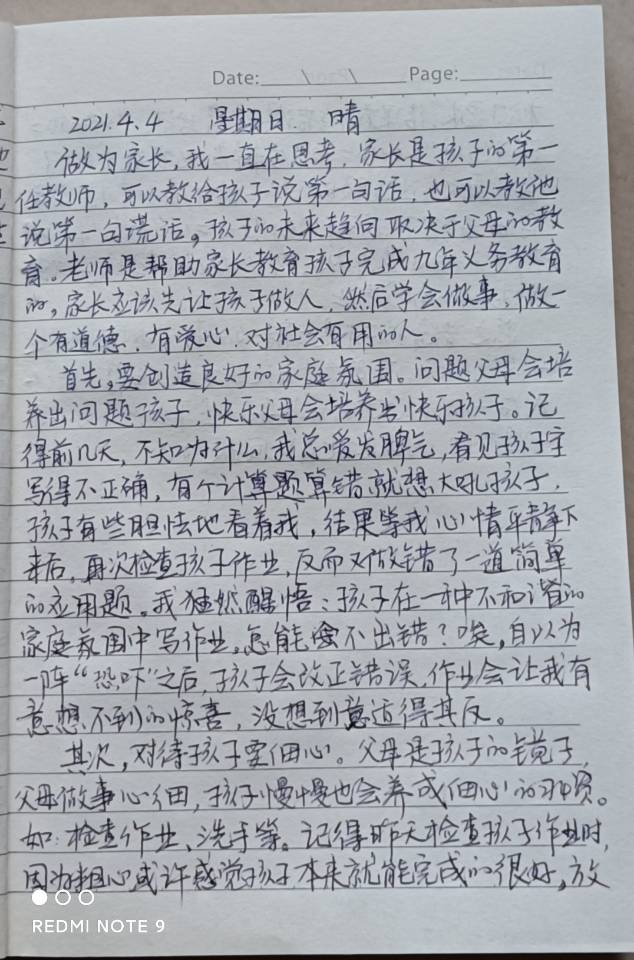 Date: / / Page:
2021.4.4 星期日 晴
做为家长，我一直在思考，家长是孩子的第一
任教师，可以教给孩子说第一句话，也可以教他
说第一句谎话。孩子的未来趋向取决于父母的教
育。老师是帮助家长教育孩子完成九年义务教育
的，家长应该先让孩子做人，然后学会做事，做一
个有道德、有爱心、对社会有用的人。
首先，要创造良好的家庭氛围。问题父母会培
养出问题孩子，快乐父母会培养出快乐孩子。记
得前几天，不知为什么，我总爱发脾气，看见孩子字
写得不正确，有个计算题算错就想大吼孩子，
孩子有些胆怯地看着我，结果等我心情平静下
来后，再次检查孩子作业，反而又做错了一道简单
的应用题。我猛然醒悟：孩子在一种不和谐的
家庭氛围中写作业。怎能不出错？唉，自以为
一阵“恐吓”之后，孩子会改正错误，作业会让我有
意想不到的惊喜，没想到适得其反。
其次，对待孩子要细心。父母是孩子的镜子，
父母做事心细，孩子慢慢也会养成细心的习惯。
如：检查作业、洗手等。记得昨天检查孩子作业时，
因为粗心或许感觉孩子本来就能完成的很好，放
REDMI NOTE 9